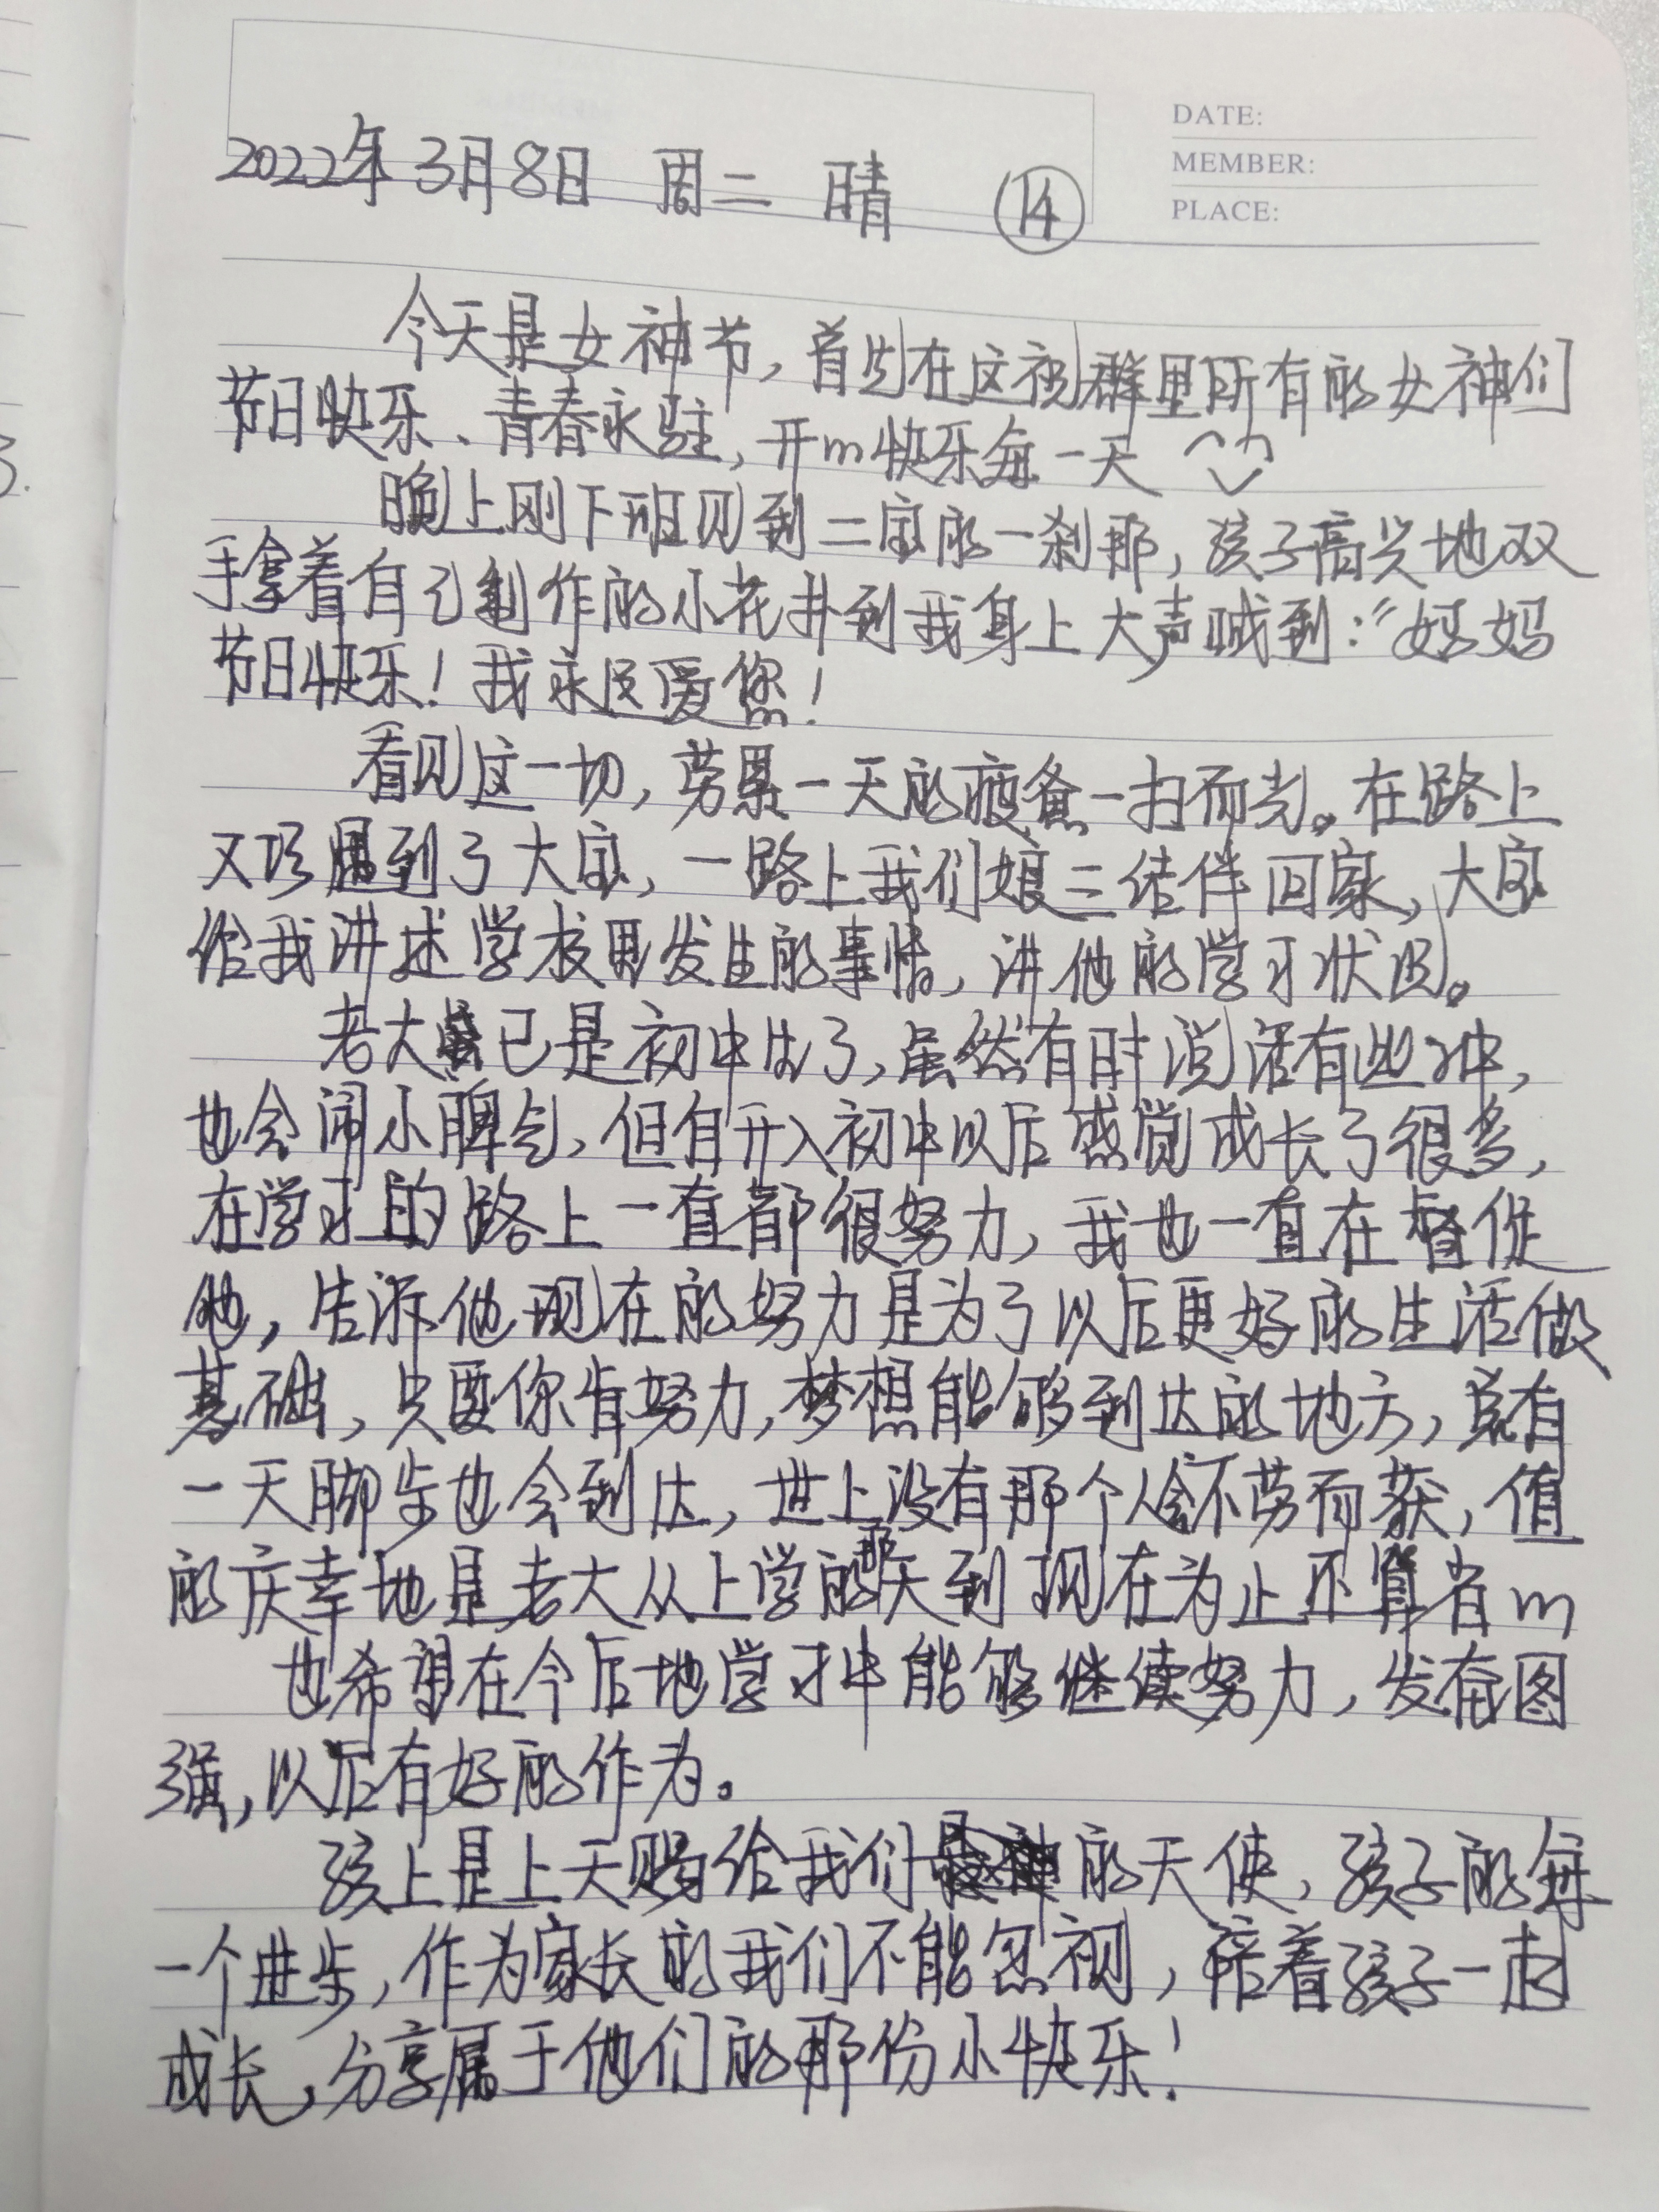 DATE:
MEMBER:
PLACE:
2022年3月8日 周二 晴 ⑭
今天是女神节,首先在这祝群里所有的女神们
节日快乐、青春永驻,开心快乐每一天
晚上刚下班见到二宝的一刹那,孩子高兴地双
手拿着自己制作的小花扑到我身上大声喊到:“妈妈
节日快乐!我永远爱您!
看见这一切,劳累一天的疲惫一扫而光。在路上
又巧遇到了大宝,一路上我们娘三结伴回家,大宝
给我讲述学校里发生的事情,讲他的学习状况。
老大已是初中生了,虽然有时说话有些冲,
也会闹小脾气,但自升入初中以后感觉成长了很多,
在学习的路上一直都很努力,我也一直在督促
他,告诉他现在的努力是为了以后更好的生活做
基础,只要你肯努力,梦想能够到达的地方,总有
一天脚步也会到达,世上没有那个人会不劳而获,值
的庆幸地是老大从上学的那天到现在为止还算省心
也希望在今后地学习中能够继续努力,发奋图
强,以后有好的作为。
孩上是上天赐给我们的天使,孩子的每
一个进步,作为家长的我们不能忽视,陪着孩子一起
成长,分享属于他们的那份小快乐!